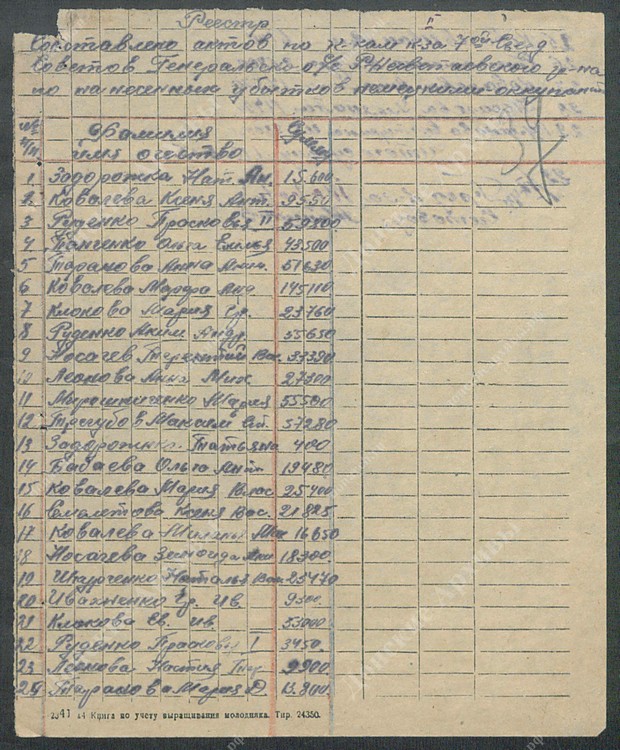 Реестр
Составлено актов по к-кам к-за 7ой Съезд
Советов Генеральско-о/ве Р-Несветаевского р-на
по нанесенных убытков немецкими оккупантами
№№ Фамилия Сумма
п/п имя отчество
1 Задорожка Нат. Ан. 15.600
2 Ковалева Ксения Ант. 9550
3 Руденко Прасковья П 59800
4 Панченко Ольга Емелья 43500
5 Таранова Анна Ант. 51630
6 Ковалева Марфа Анд 145110
7 Клокова Мария Гр. 23760
8 Руденко Аким Андр. 55650
9 Носачев Терентий Вас 33390
10 Леонова Анна Мих 27300
11 Мирошниченко Мария 55500
12 Трегубов Максим 57280
13 Задорожко Татьяна 400
14 Бабаева Ольга Ант 19480
15 Ковалева Мария Влас 25400
16 Семлетова Ксеня Вас. 21825
17 Ковалева 16650
18 Носачева Зиноида 18300
19 Шкурченко Наталья Вас 25470
20 Ивахненко Гр. Ив. 9500
21 Клокова Ев. Ив. 53000
22 Руденко Прасковья 3450.
23 Леонова Настия 9900
24 Таранова Мария Д. 13.800
2341 14 Книга по учету выращивания молодняка. Тир. 24350.